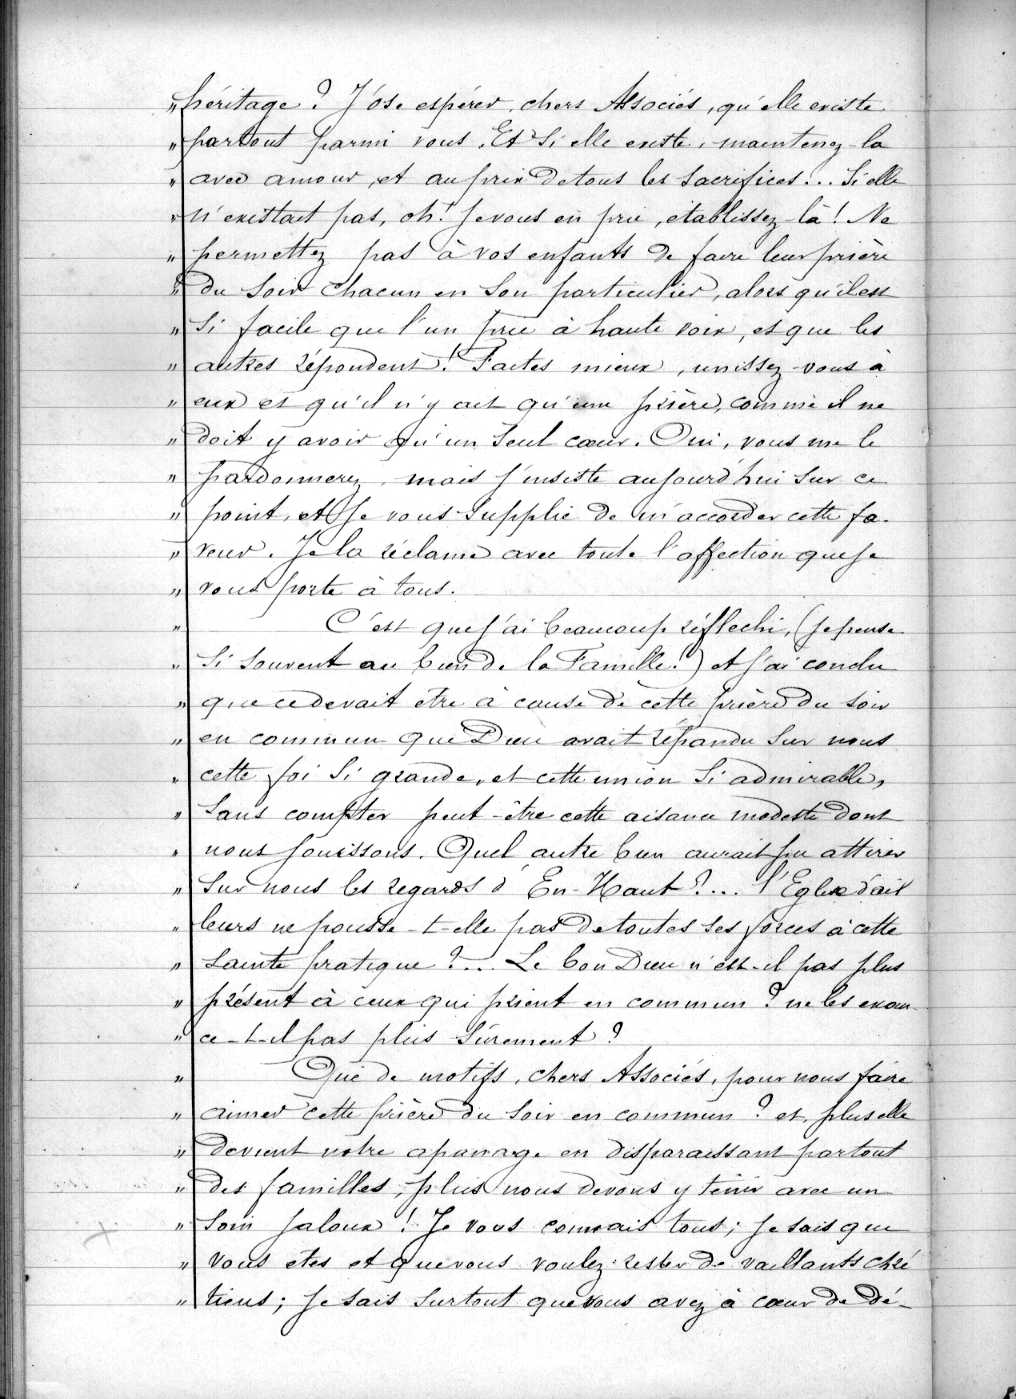 „ héritage ? J'ose espérer, chers Associés, qu'elle existe
„ partout parmi vous. Et si elle existe, maintenez-la
„ avec amour, et au prix de tous les sacrifices... Si elle
„ n'existait pas, oh! je vous en prie, établissez-là ! Ne
„ permettez pas à vos enfants de faire leur prière
„ du soir chacun en son particulier, alors qu'il est
„ si facile que l'un prie à haute voix, et que les
„ autres répondent ! Faites mieux, unissez-vous à
„ eux et qu'il n'y ait qu'une prière, comme il ne
„ doit y avoir qu'un seul cœur. Oui, vous me le
„ pardonnerez, mais j'insiste aujourd'hui sur ce
„ point, et je vous supplie de m'accorder cette fa-
„ veur. Je la réclame avec toute l'affection que je
„ vous porte à tous.
„ C'est que j'ai beaucoup réflechi, (je pense
„ si souvent au bien de la Famille !) et j'ai conclu
„ que ce devait être à cause de cette prière du soir
„ en commun que Dieu avait répandu sur nous
„ cette foi si grande, et cette union si admirable,
„ sans compter peut-être cette aisance modeste dont
„ nous jouissons. Quel autre bien aurait pu attirer
„ sur nous les regards d'En-Haut ?... l'Eglise d'ail
„ leurs ne pousse-t-elle pas de toutes ses forces à cette
„ sainte pratique ?... Le bon Dieu n'est-il pas plus
„ présent à ceux qui prient en commun ? ne les exau-
„ ce-t-il pas plus sûrement ?
„ Que de motifs, chers Associés, pour nous faire
„ aimer cette prière du soir en commun ? et, plus elle
„ devient notre apanage en disparaissant partout
„ des familles, plus nous devons y tenir avec un
„ soin jaloux ! Je vous connais tous ; je sais que
„ vous etes et que vous voulez rester de vaillants chré
„ tiens ; je sais surtout que vous avez à cœur de dé-